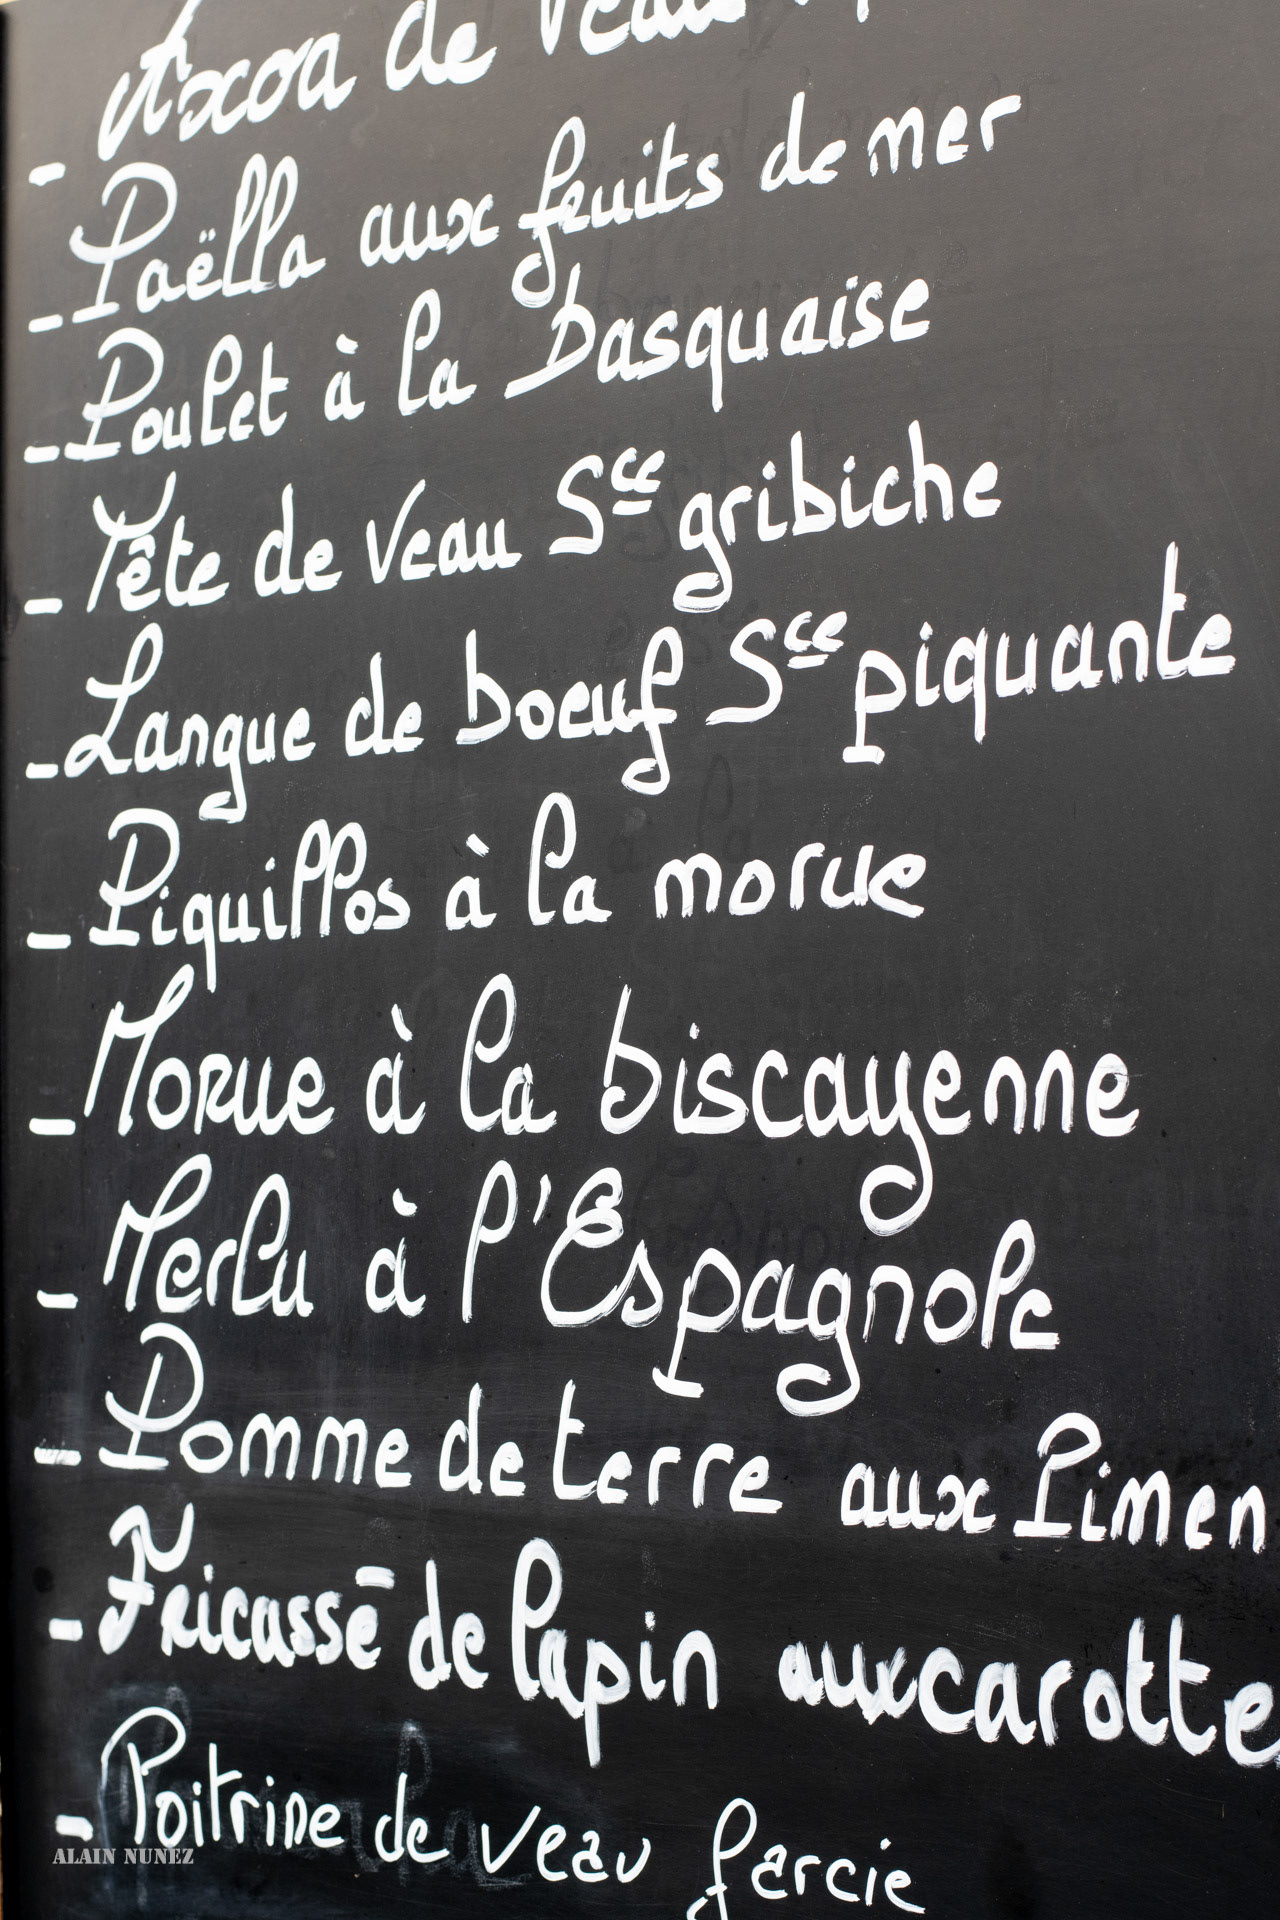 - Axoa de Veau
- Paëlla aux fruits de mer
- Poulet à la basquaise
- Tête de Veau Sce gribiche
- Langue de boeuf Sce piquante
- Piquillos à la morue
- Morue à la biscayenne
- Merlu à l'Espagnole
- Pomme de terre aux Pimen
- Fricassé de lapin aux carotte
- Poitrine de veau farcie
ALAIN NUNEZ